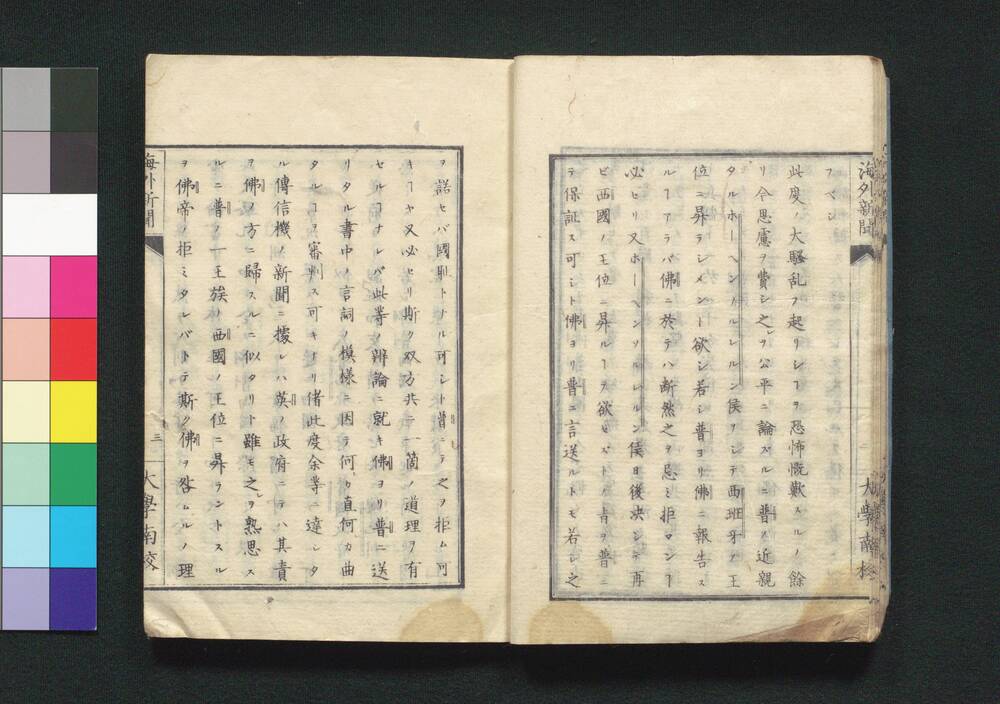 海外新聞
大學南校
フベシ
此度ノ大騷乱ヲ起リシヿヲ恐怖慨歎スルノ餘
リ今思慮ヲ費シ之ヲ公平ニ論スルニ普ノ近親
タルホーヘンソルレルン侯ヲシテ西班牙ノ王
位ニ昇ラシメント欲シ若シ普ヨリ佛ニ報告ス
ルヿアラバ佛ニ於テハ断然之ヲ忌ミ拒ロンヿ
必セリ又ホーヘンソルレルン侯日後决シテ再
ビ西國ノ王位ニ昇ルヿヲ欲セズトノ旨ヲ普ニ
テ保証ス可シト佛ヨリ普ニ言送ルトモ若シ之
ヲ諾セバ國耻トナル可シト普ニテ之ヲ拒ム可
キヿヤ又必セリ斯ク双方共ニ一箇ノ道理ヲ有
セルヿナレバ此等ノ辨論ニ就キ佛ヨリ普ニ送
リタル書中ノ言詞ノ模様ニ因テ何カ直何カ曲
タルヿヲ審判ス可キナリ偖此度余等ニ達シタ
ル傳信機ノ新聞ニ據レハ英ノ政府ニテハ其責
ヲ佛ノ方ニ歸スルニ似タリト雖モ之ヲ熟思ス
ルニ普ノ一王族ノ西國ノ王位ニ昇ラントスル
ヲ佛帝ノ拒ミタレバトテ斯ク佛ヲ咎ムルノ理
海外新聞
三
大學南校